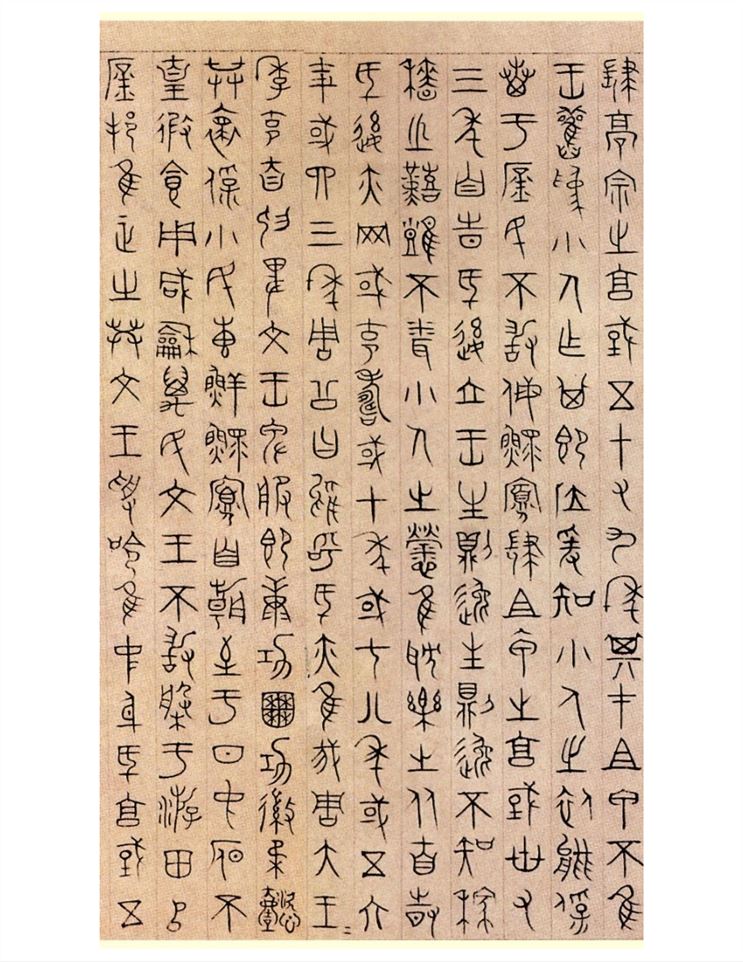 肆高宗之享國五十又九年其才且甲不隹
王舊爲小人作其即位爰知小人之依能保
惠于庶民不敢侮鰥寡肆且甲之享國卅又
三年自時厥後立王生則逸生則逸不知稼
穡之艱難不聞小人之勞隹耽樂之从自時
厥後亦罔或克壽或十年或七八年或五六
年或四三年周公曰於呼厥亦隹我周大王=
季克自抑畏文王卑服即康功田功徽柔懿
共懷保小民惠鮮鰥寡自朝至于日中昃不
皇暇食用咸龢萬民文王不敢槃于游田以
庶邦隹正之共文王受命隹中身厥享國五